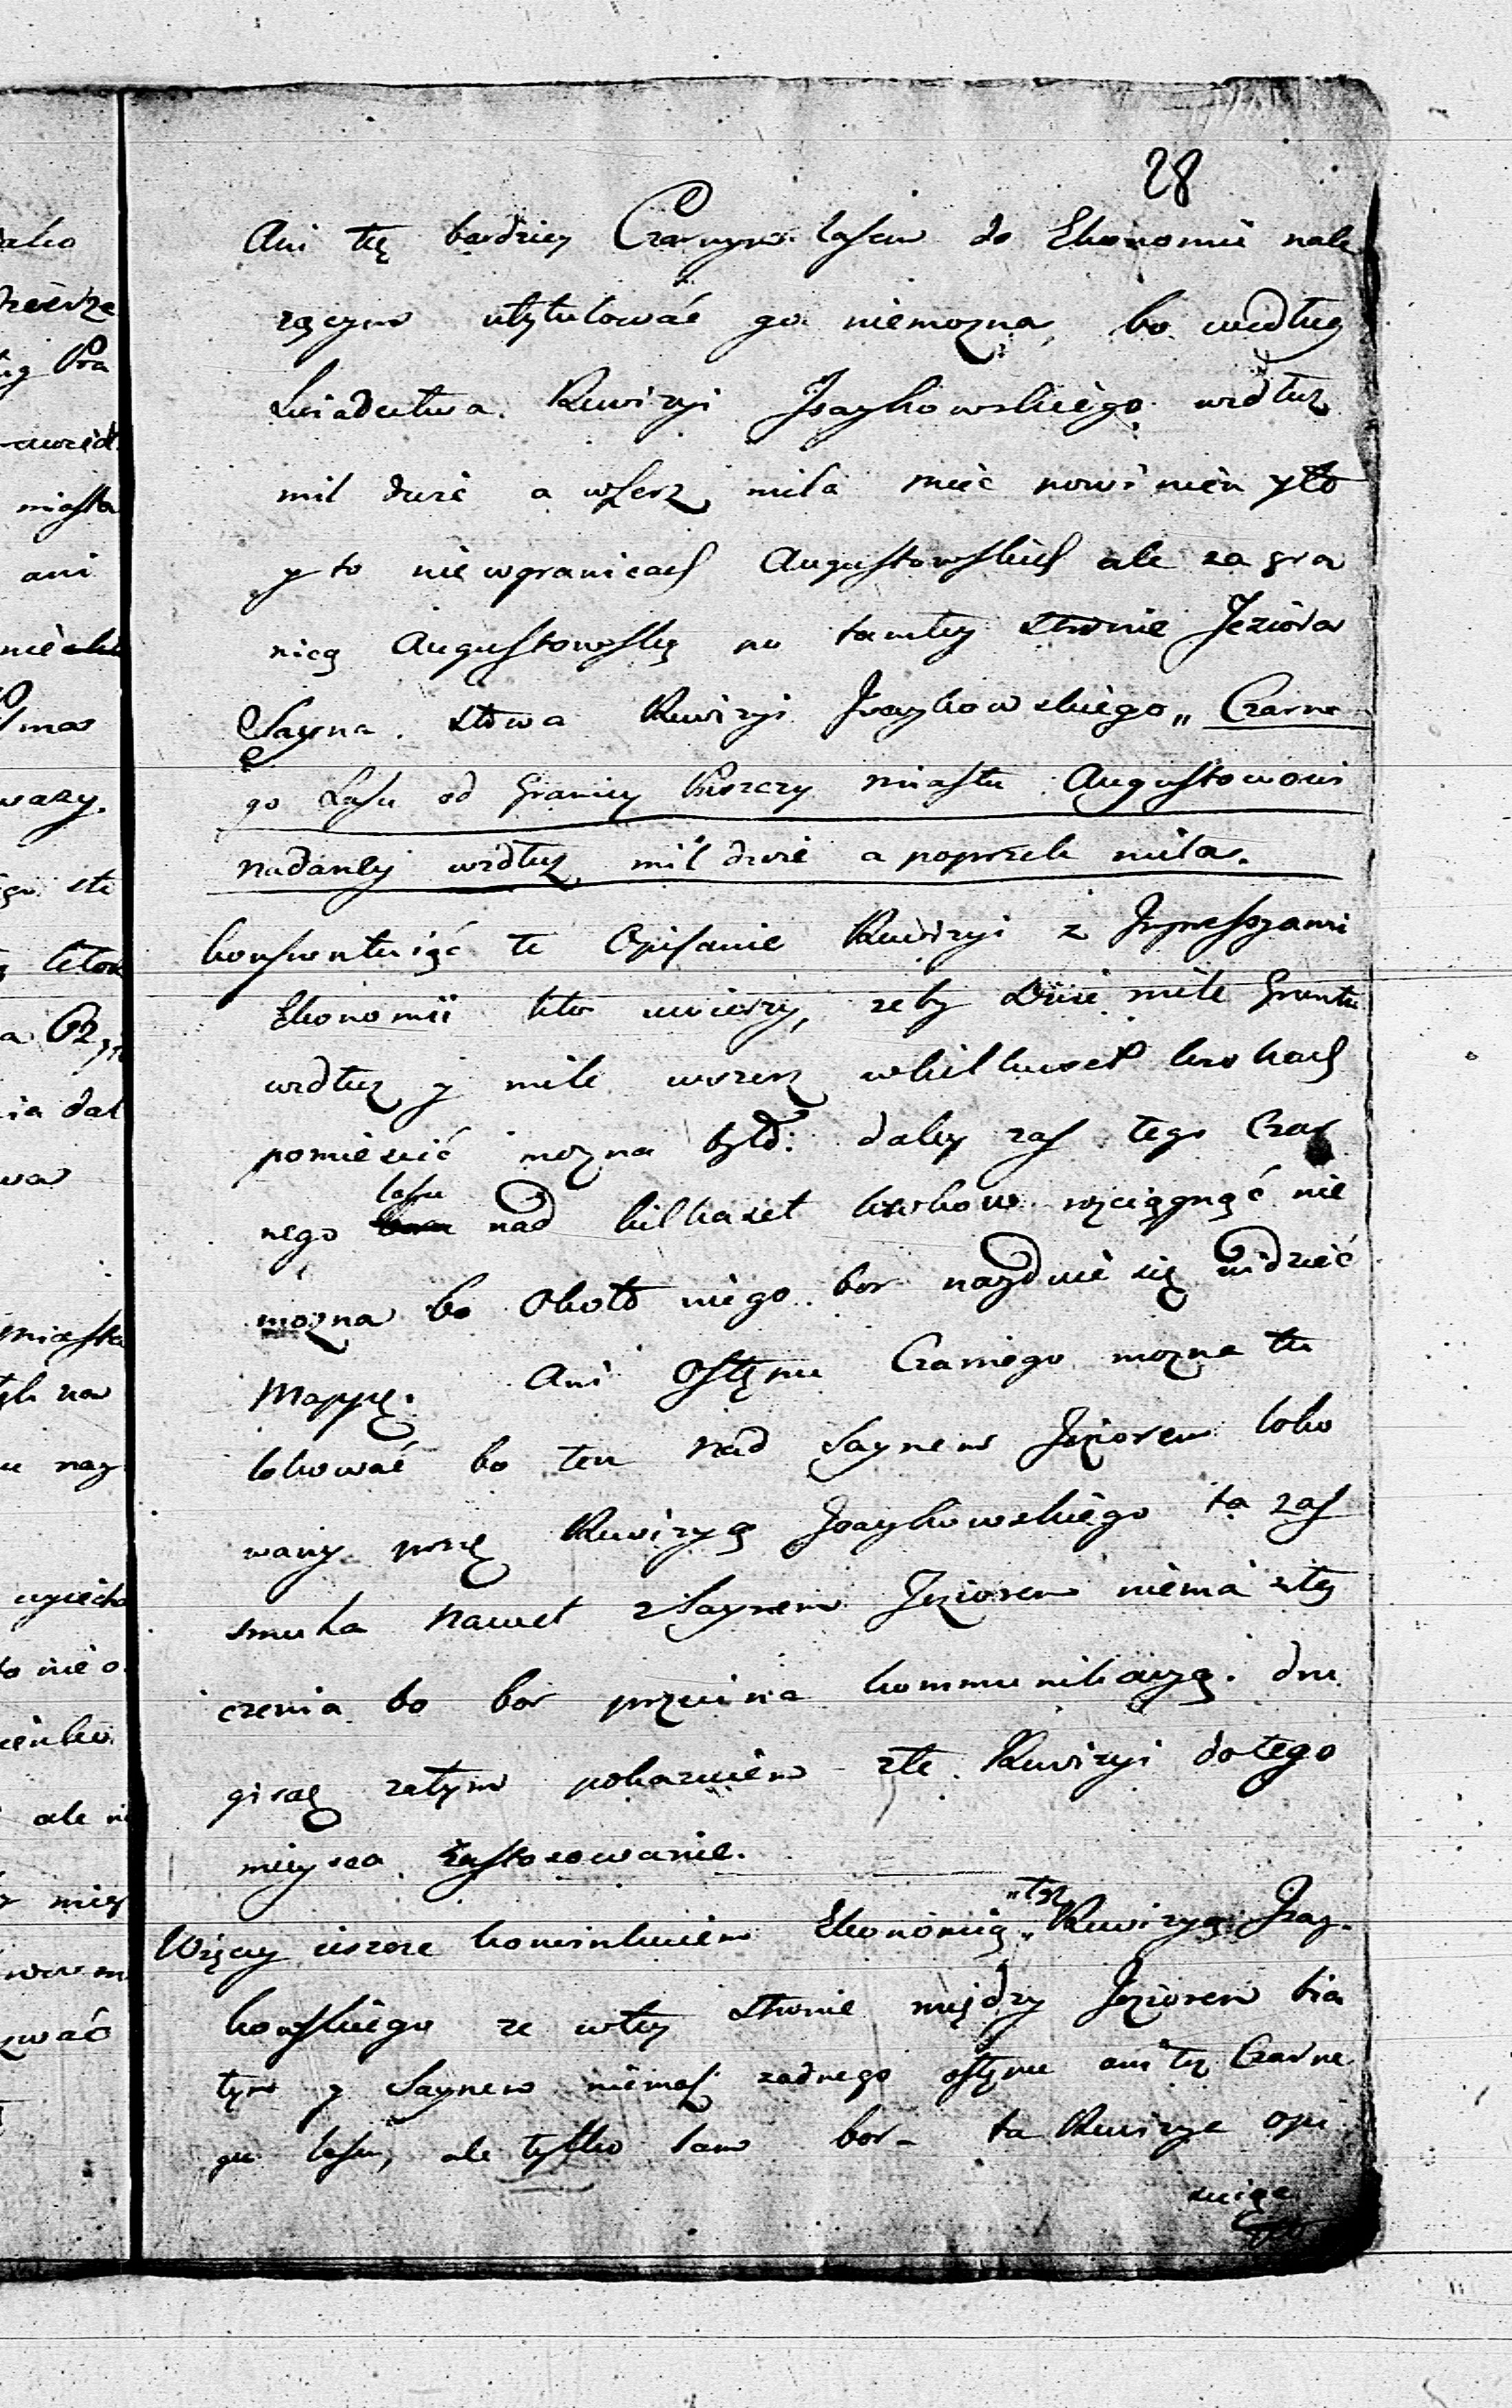 28
Ani tę bardziey Czarnym lasem do Ekonomii nale
zącym utytułować go niemozna, bo według
swiadectwa Rewizyi Jsaykowskiego wzdłuz
mil dwie a wszerz mila mieć powinien
y to nie w granicach Augustowskich ale za gra
nicą Augustowską na tamtey stronie Jeziora
Sayna. słowa Rewizyi Jsaykowskiego „ Czarne
go Lasu od Granicy Puszczy miastu Augustowowi
nadaney wzdłuz mil dwie a poprzek mila.
konfrontuiąc te Opisanie Rewizyi z Jmpressyami
Ekonomii kto uwierzy, zeby Dwie mile Gruntu
wzdłuz y mile wszerz w kilkuset krokach
pomiescić mozna było: daley zas tego Czar
nego lasu nad kilkaset krokow rozciągnąć nie
mozna bo około niego bor nayduie się widzieć
Mappę. Ani Ostępu Czarnego mozna tu
lokować bo ten nad Saynem Jeziorem loko
wany przez Rewizyą Jsaykowskiego ta zas
smuha nawet z Saynem Jeziorem niema złą
czenia bo bor przecina kommunikacyą. dru
gi raz zatym pokazuiem złe Rewizyi do tego
mieysca zastosowanie.
Więcey ieszcze konwinkuiem Ekonomią „tąz„ Rewizyą Jsay-
kowskiego ze w tey stronie między Jeziorem bia
łym y Saynem niemasz zadnego ostępu ani tez Czarne
go lasu, ale tylko sam bor - ta Rewizya opi
suiąc